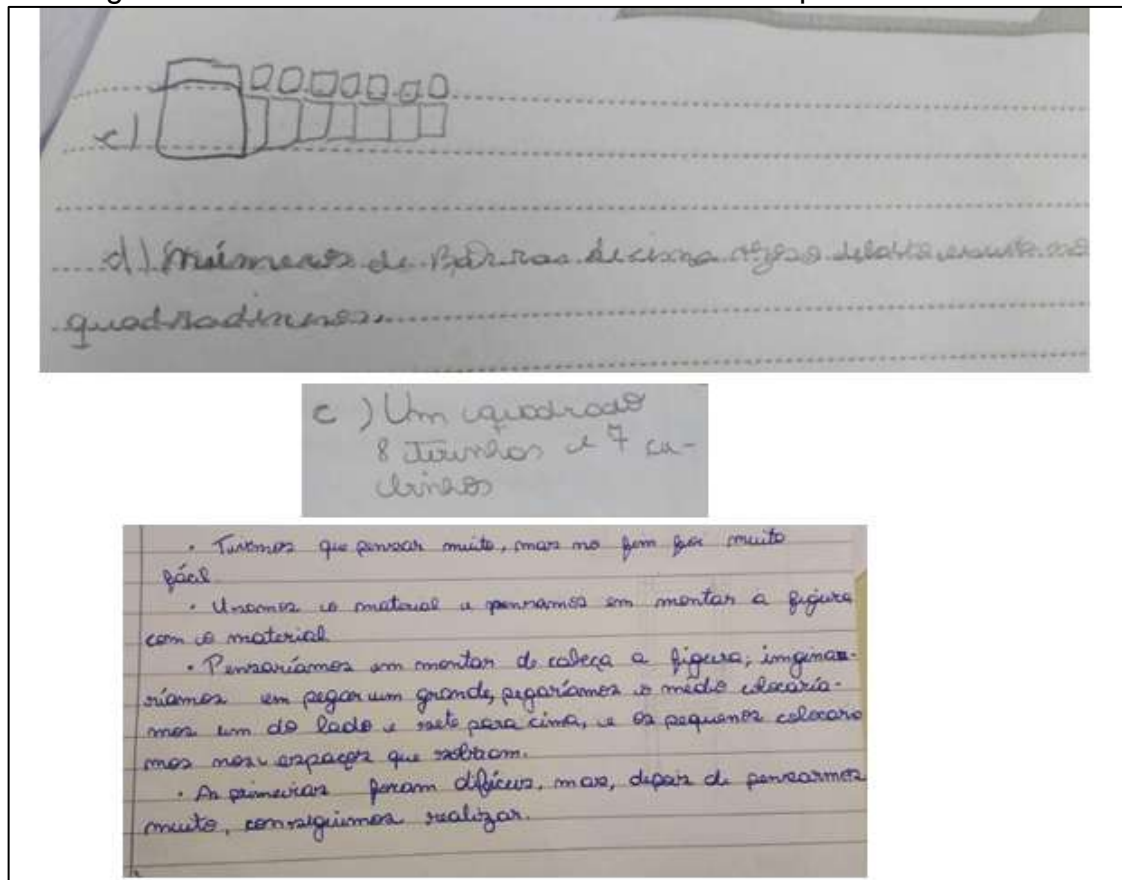 c)
d) Números de Barras de cima
quadradinhos.
c) Um quadrado
8 tirinhas e 7 cu-
binhos
• Tivemos que pensar muito, mas no fim foi muito
fácil.
• Usamos o material e pensamos em montar a figura
com o material.
• Pensaríamos em montar de cabeça a figura, imgina-
ríamos em pegar um grande, pegaríamos o médio colocaría-
mos um do lado e sete para cima, e os pequenos colocaro
mos nos espaços que sobram.
• As primeiras foram difíceis, mas, depois de pensarmos
muito, conseguimos realizar.